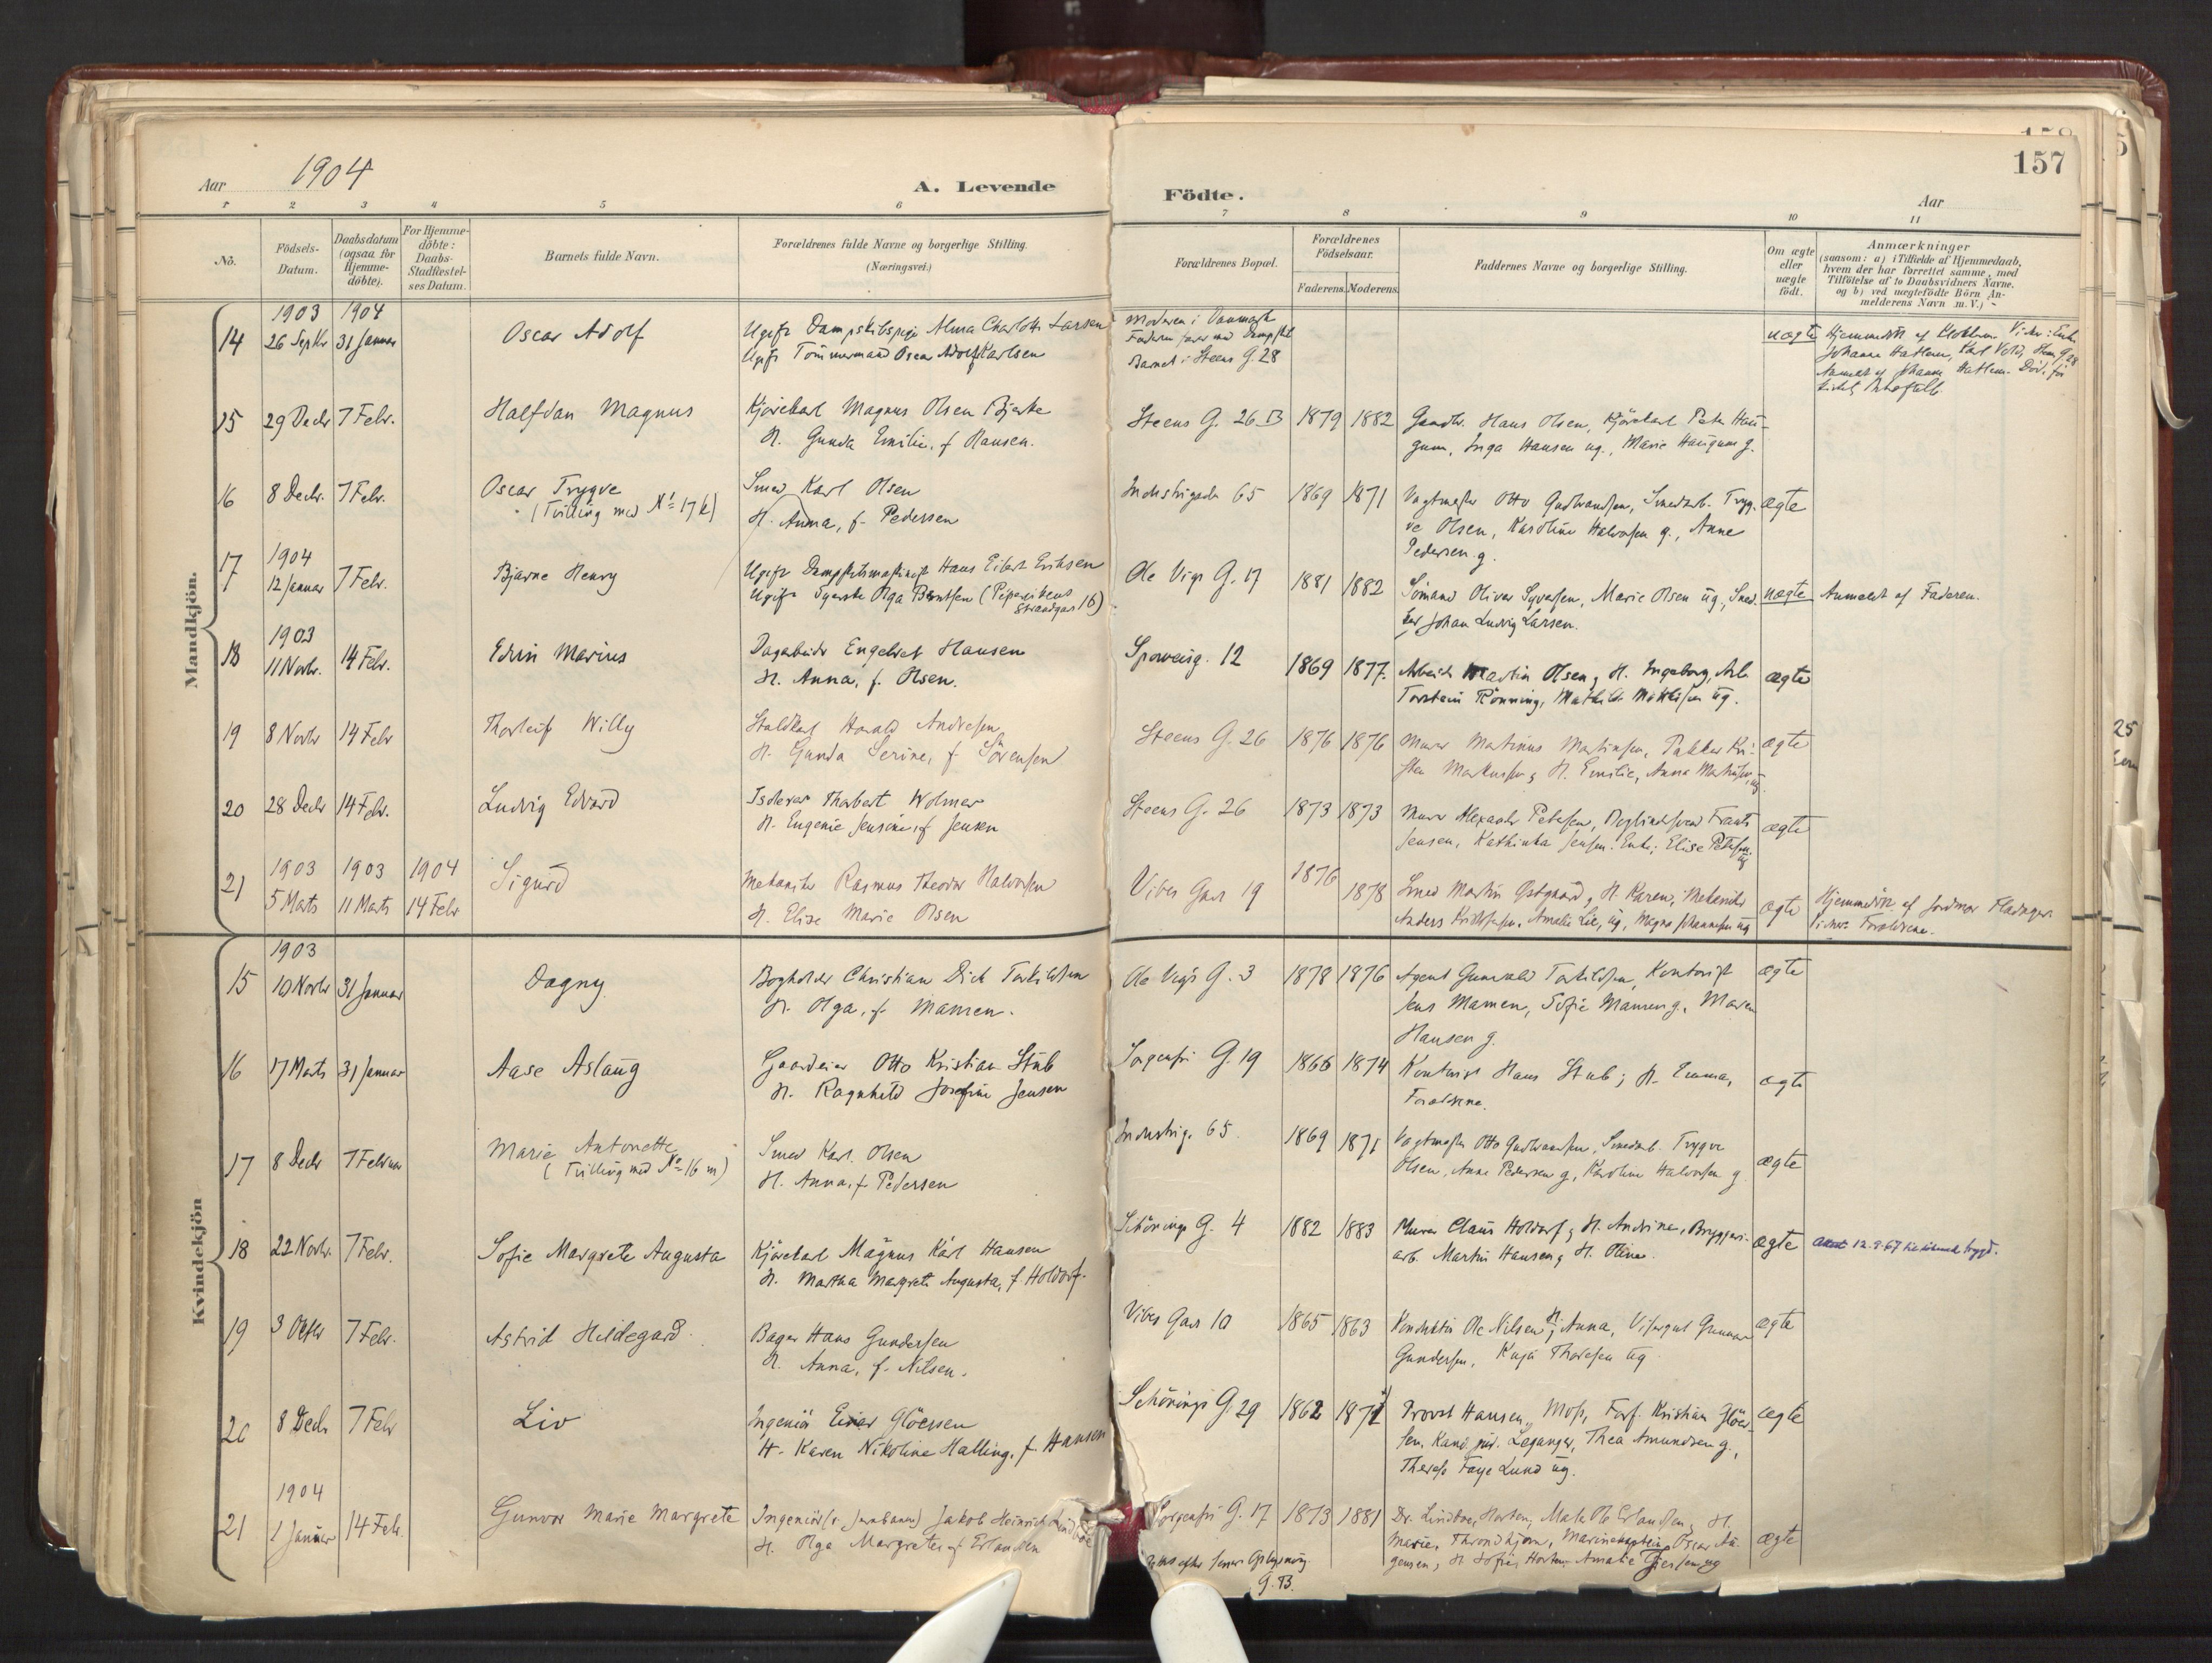 157
Aar 1904
A. Levende Födte.
Aar
1 2 3 4 5 6 7 8 9 10 11
Nö.
Födsels-Datum.
Daabsdatum (ogsaa for Hjemmedöbte).
For Hjemmedöbte: Daabs-Stadfæstelses Datum.
Barnets fulde Navn.
Forældrenes fulde Navne og borgerlige Stilling.
(Næringsvei.)
Forældrenes Bopæl.
Forældrenes Födselsaar.
Faderens. Moderens.
Faddernes Navne og borgerlige Stilling.
Om ægte eller uægte födt.
Anmærkninger
(saasom: a) i Tilfælde af Hjemmedaab, hvem der har forrettet samme, med Tilföielse af to Daabsvidners Navne. og b) ved uægtefödte Börn Anmelderens Navn m.V.)
Mandkjön.
14 1903 26 Septbr 1904 31 Januar Oscar Adolf
Ugift Dampskibspige Alma Charlotte Larsen
Ugift Tömmermand Oscar Adolf Karlsen
Moderen i Danmark
Faderen farer med Dampskib
Barnet i Steens G. 28
uægte
15 29 Decbr 7 Febr. Halfdan Magnus
Kjörekarl Magnus Olsen Bjerke
H. Gunda Emilie, f. Hansen.
Steens G. 26 B 1879 1882
Hans Olsen, Kjörekarl Peter Hau-
gum, Inga Hansen ug., Marie Haugum g.
16 8 Decbr. 7 Febr. Oscar Trygve
(Tvilling med No 17 k)
Smed Karl Olsen
H. Anna, f. Pedersen
Industrigade 65 1869 1871
Vagtmester Otto Gudbrandsen, Smedarb. Tryg-
ve Olsen, Karoline Halvorsen g., Anne
Pedersen g.
ægte
17 1904 12 Januar 7 Febr. Bjarne Henry
Ugift Hans Eibert Eriksen
Ugift Syerske Olga Berntsen (Pipervikens
Strandgas 16)
Ole Vigs G. 17 1881 1882
Sömand Oliver Syversen, Marie Olsen ug., Sned-
ker Johan Ludvig Larsen.
uægte Anmeldt af Faderen.
18 1903 11 Novbr. 14 Febr. Edvin Marius
Dagarbeider Engebret Hansen
H. Anna, f. Olsen.
Sporveisg. 12 1869 1877.
Arbeider Martin Olsen, H. Ingeborg, Arb.
Torstein Rönning, Mathilde ug.
ægte
19 8 Novbr 14 Febr Thorleif Willy
Staldkarl Harald Andresen
H. Gunda Serine, f. Sörensen
Steens G. 26 1876 1876
Murer Martinus Martinsen, Pakker Kri-
sten Markussen, H. Emilie, Anna Martinsen ug.
ægte
20 28 Decbr 14 Febr. Ludvig Edvard
Isolerer Thorbert Wolmer
H. Eugenie Jensine, f. Jensen
Steens G. 26 1873 1873
Murer Alexander Petersen, Frants
Jensen, Kathinka Jensen Enke, Elise Petersen ug
ægte
21 1903 5 Marts 1903 11 Marts 1904 14 Febr Sigurd
Mekaniker Rasmus Theodor Halvorsen
H. Elise Marie Olsen
Vibes Gade 19 1876 1878
Smed Martin Østgaard, H. Karen, Mekaniker
Anders Kristoffersen, Amalie Lie, ug, Magna Johannesen ug
ægte
Hjemmedöbt af Jordmor
Vidner: Forældrene.
Kvindekjön
15 1903 10 Novbr 31 Januar Dagny
Bogholder Christian Dick Torkildsen
H. Olga, f. Mamen.
Ole Vigs G. 3 1878 1876
Agent Gunvald Torkildsen, Kontorist
Jens Mamen, Sofie Mamen g., Maren
Hansen g.
ægte
16 17 Marts 31 Januar Aase Aslaug
Gaardeier Otto Kristian Stub
H. Ragnhild Josefine Jensen
Sorgenfri G. 19 1866 1874
Kontorist Hans Stub, H. Emma,
Forældrene.
ægte
17 8 Decbr 7 Februar Marie Antonette
(Tvilling med No 16 m)
Smed Karl Olsen
H. Anna, f. Pedersen
Industrig. 65. 1869 1871
Vagtmester Otto Gudbrandsen, Smedarb. Trygve
Olsen, Anne Pedersen g., Karoline Halvorsen g
ægte
18 22 Novbr. 7 Febr. Sofie Margrete Augusta
Kjörekarl Magnus Karl Hansen
H. Martha Margrete Augusta, f. Holdorf.
Schönings G. 4 1882 1883
Murer Claus Holdorf, H. Andrine, Bryggeri-
arb. Martin Hansen, H. Oline.
ægte 12.9.67
19 3 Oktbr 7 Febr. Astrid Hildegard.
Bager Hans Gundersen
H. Anna, f. Nilsen.
Vibes Gade 10 1865 1863
Konduktör Ole Nilsen, H. Anna, Visergut Gunnar
Gundersen, Kaja Thoresen ug
ægte
20 8 Decbr 7 Febr Liv
Ingeniör Einar Glöersen
H. Karen Nikoline Malling, f. Hansen
Schönings G. 29 1862 1871
Provst Hansen, Moss, Forf. Kristian Glöer-
sen, Kand. jur. Leganger, Thea Amundsen g.,
Therese Faye Lund ug.
ægte
21 1904 1 Januar 14 Febr. Gunvor Marie Margrete
Ingeniör (v. Jernbanen) Jakob Heinrich Lindboe
H. Olga Margrete, f. Erlandsen
Sorgenfri G. 17 1873 1881
Dr. Lindboe, Horten, Ole Erlandsen, H.
Marie, Throndhjem, Marinekaptein Oscar Aa-
gensen, H. Sofie, Horten, Amalie ug
ægte
Rettet efter senere Oplysning
G. B.